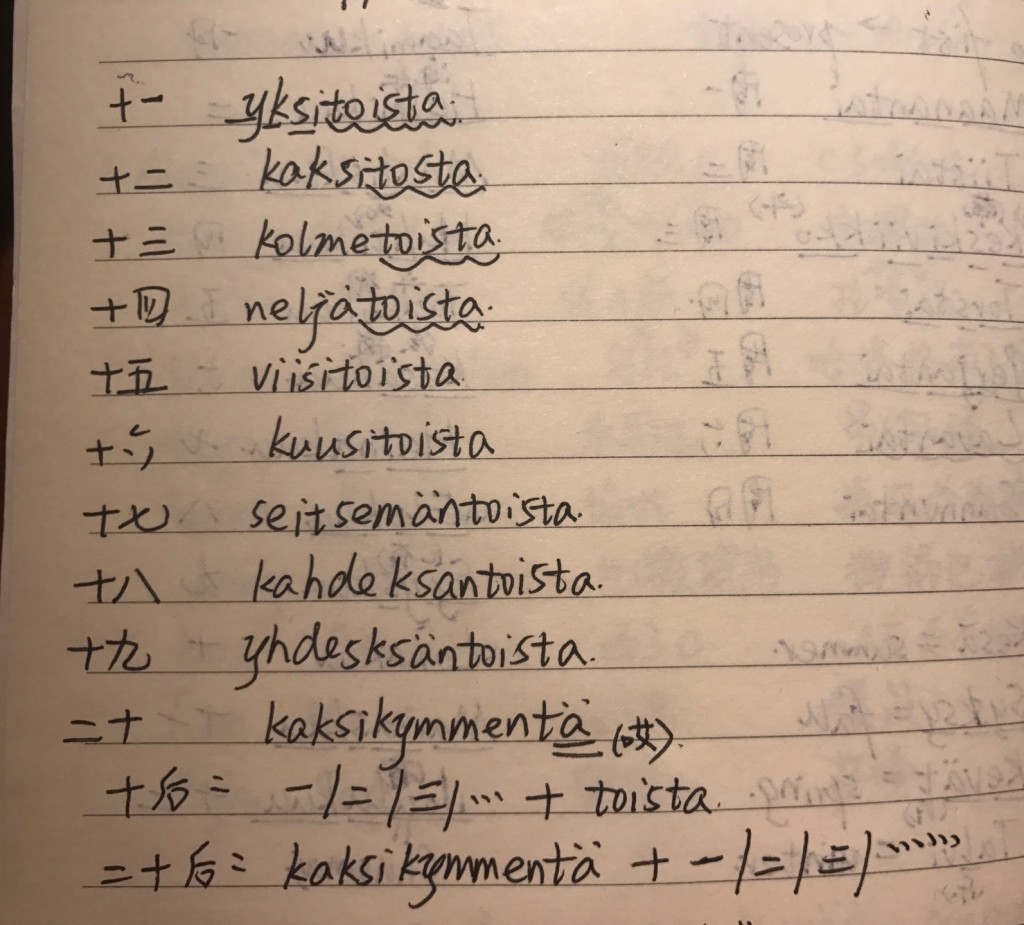 十一 yksitoista.
十二 kaksitosta.
十三 kolmetoista.
十四 neljätoista.
十五 viisitoista.
十六 kuusitoista
十七 seitsemäntoista.
十八 kahdeksantoista.
十九 yhdesksäntoista.
二十 kaksikymmentä (哎).
十后= 一/二/三/… + toista.
二十后= kaksikymmentä + 一/二/三/……